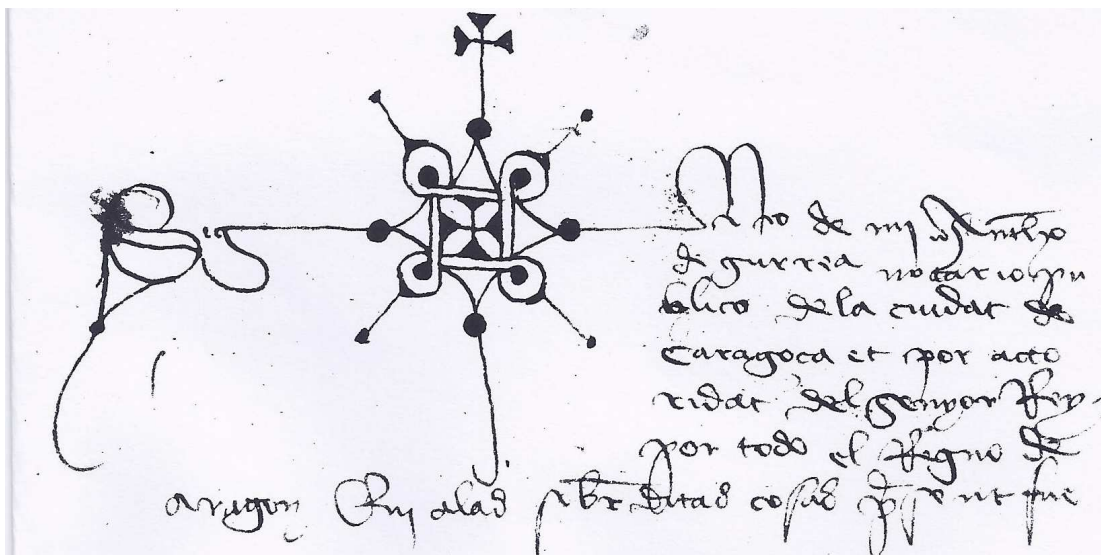 Sig no de mi
de gurrea notario pu
blico dela ciudat de
Caragoça et por acto
ridat del senyor Rey
por todo el Regno de
aragon Qui alas sobreditas cosas present fue